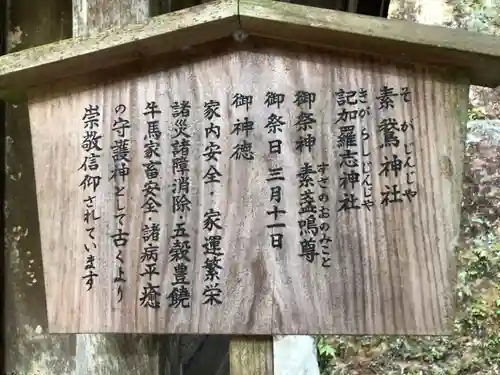 素鵞神社
そがじんじゃ
記加羅志神社
きがらしじんじゃ
御祭神 素盞鳴尊
すさのおのみこと
御祭日 三月十一日
御神徳
家内安全・家運繁栄
諸災諸障消除・五穀豊饒
牛馬家畜安全・諸病平癒
の守護神として古くより
崇敬信仰されています